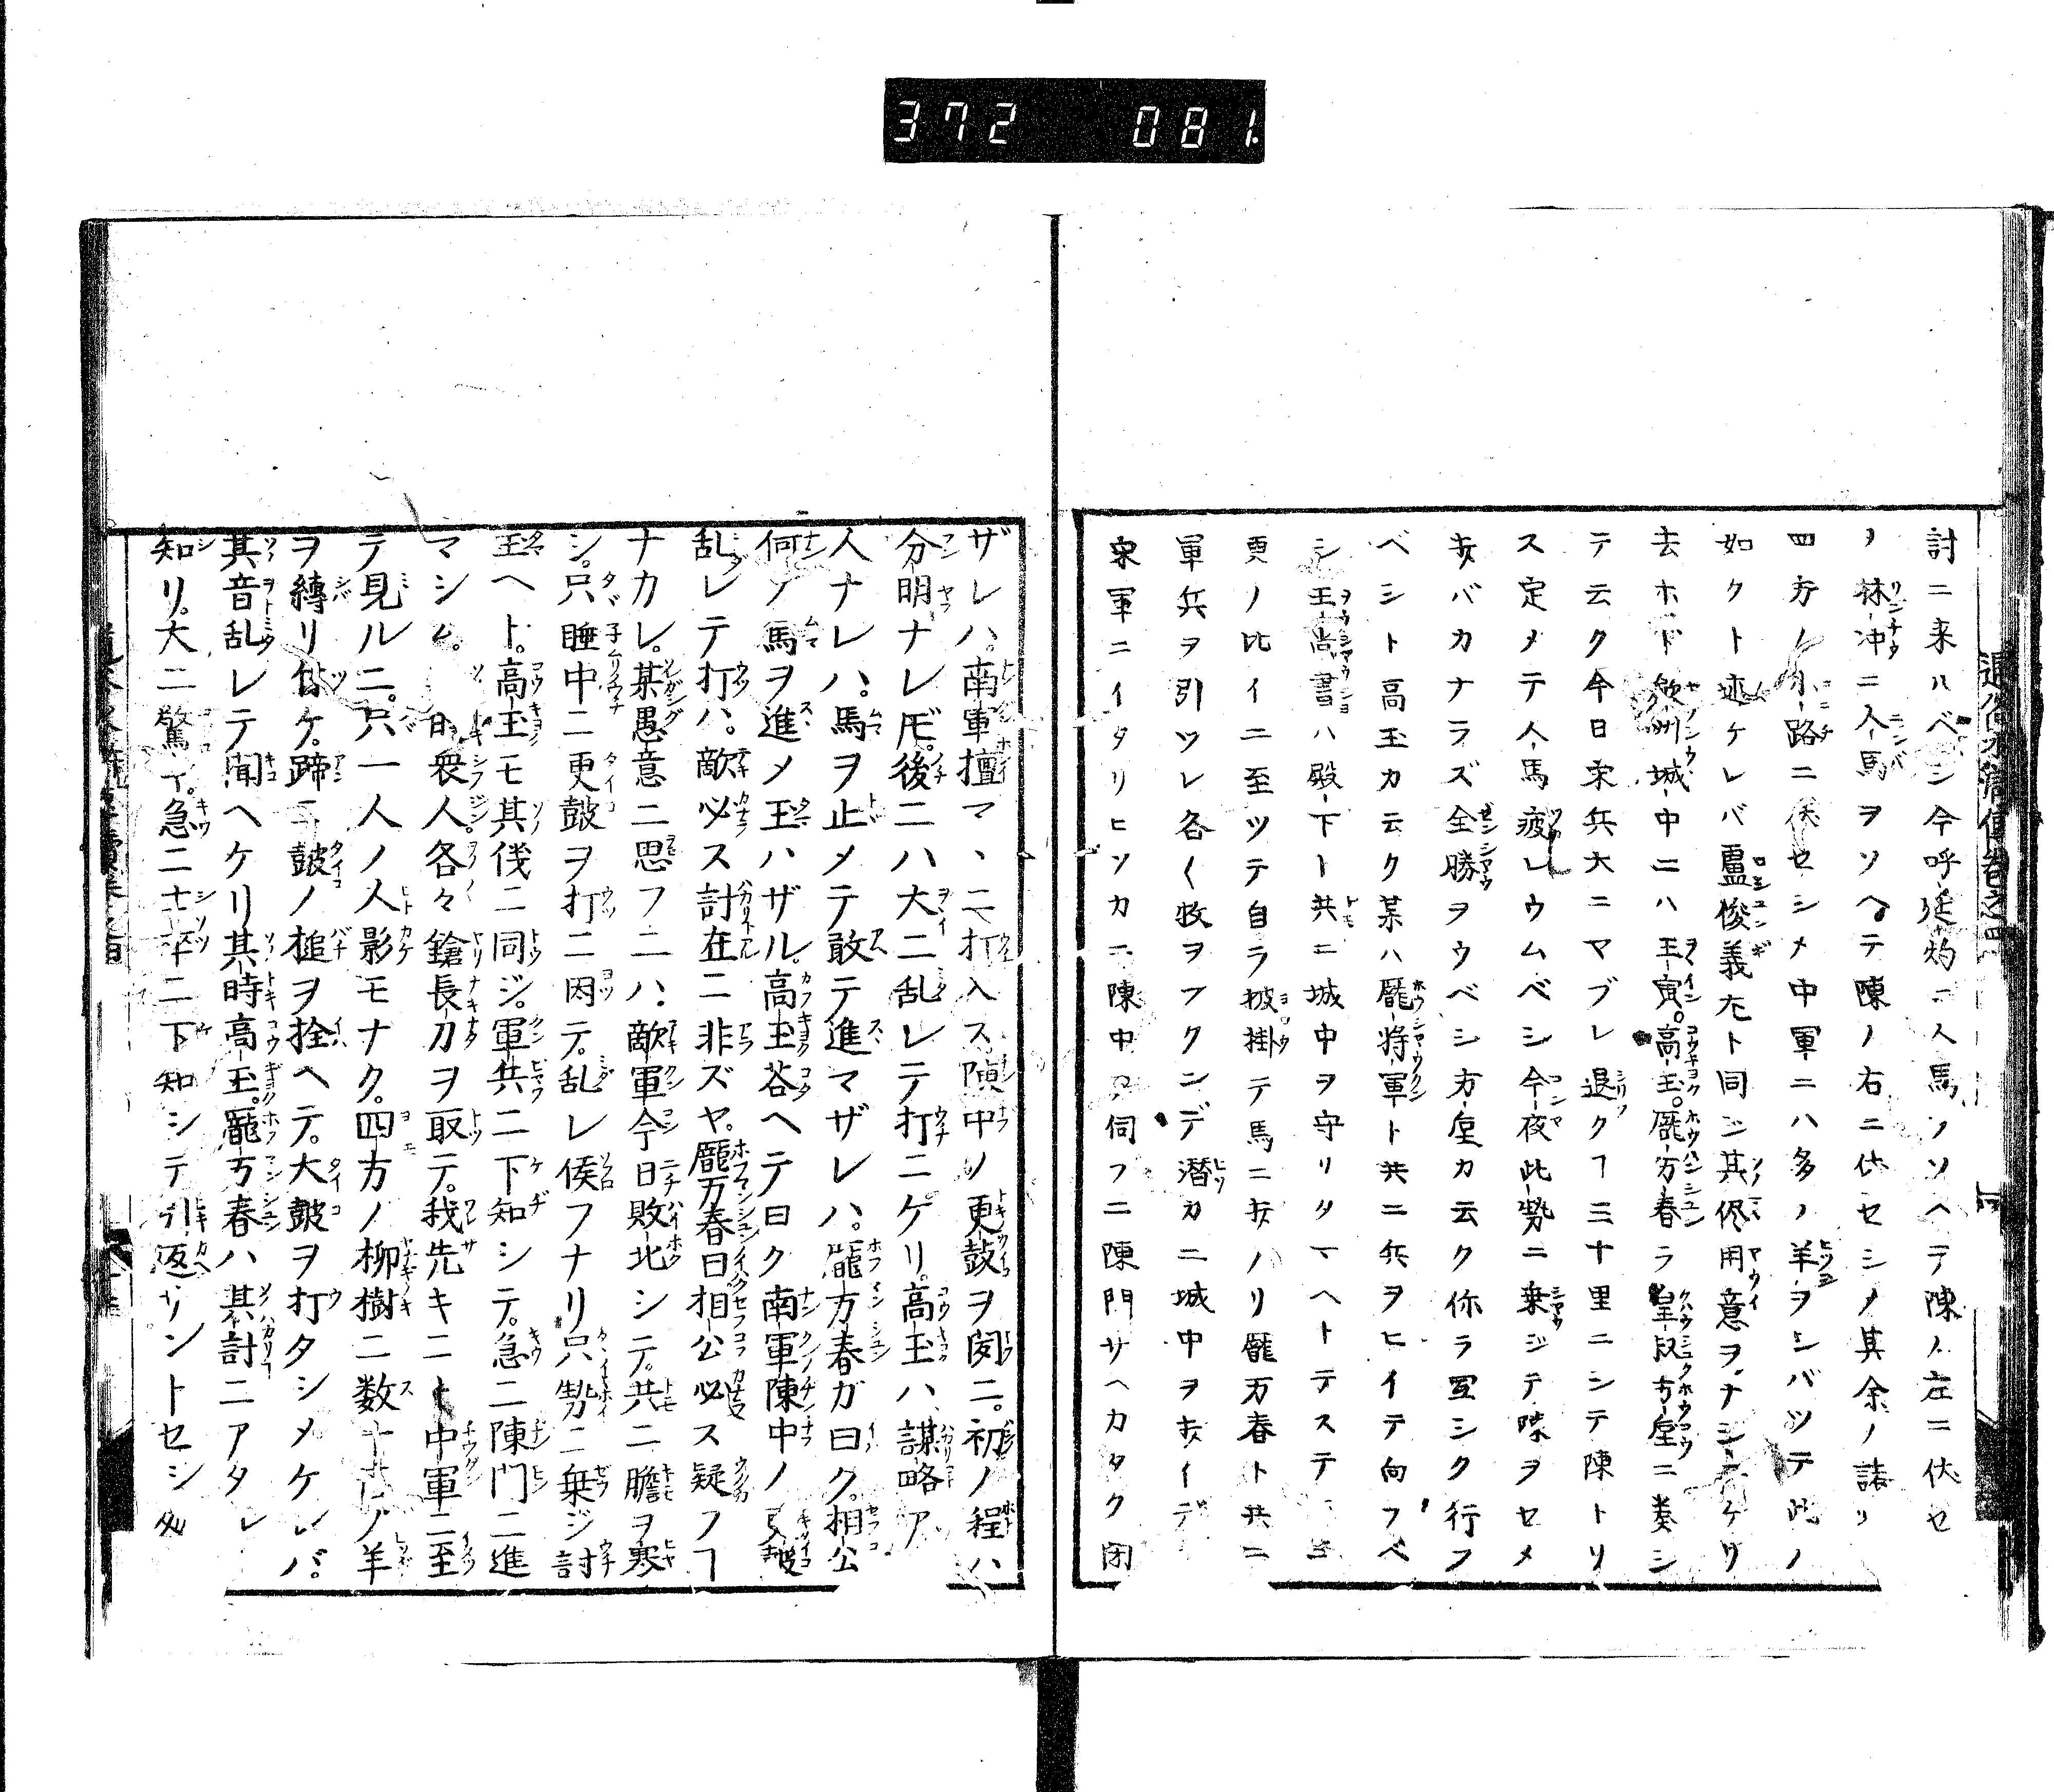 372 081
討ニ来ルベシ今呼延灼ニ人馬ヲソヘテ陳ノ左ニ伏セ
林冲ニ人馬ヲソヘテ陳ノ右ニ伏セシメ其余ノ諸
四方ノ小路ニ伏セシメ中軍ニハ多ノ羊ヲシバツテ此ノ
如クト述ケレバ盧俊義尤ト同シ其侭用意ヲナシニケリ
去ホドニ歙州城中ニハ王寅高玉龎万春ラ皇叔方垕ニ奏シ
テ云ク今日宋兵大ニマブレ退クヿ三十里ニシテ陳トリ
ス定メテ人馬疲レウムベシ今夜此勢ニ乗ジテ陳ヲセメ
バカナラズ全勝ヲウベシ方垕カ云ク你ラ冝シク行フ
ベシト高玉カ云ク某ハ龎将軍ト共ニ兵ヲヒイテ向フベ
シ王尚書ハ殿下ト共ニ城中ヲ守リタマヘトテステニ
更ノ比イニ至ツテ自ラ披掛テ馬ニノリ龎万春ト共ニ
軍兵ヲ引ツレ各〱枚ヲフクンデ潜カニ城中ヲイデ
宋軍ニイタリヒソカニ陳中ヲ伺フニ陳門サヘカタク閉
ザレハ南軍擅マヽニ打入ス陳中ノ更鼓ヲ聞ニ初ノ程ハ
分明ナレ𪜈後ニハ大ニ乱レテ打ニケリ高玉ハ謀略ア
人ナレハ馬ヲ止メテ敢テ進マザレハ龎万春ガ曰ク相公
何ノ馬ヲ進メ玉ハザル高玉荅ヘテ曰ク南軍陳中ノ更皷
乱レテ打ハ敵必ス計在ニ非ズヤ龎万春曰相公必ス疑フヿ
ナカレ某愚意ニ思フニハ敵軍今日敗北シテ共ニ膽ヲ寒
シ只睡中ニ更鼓ヲ打ニ因テ乱レ侯フナリ只勢ニ乗ジ討
玉ヘト高玉モ其伐ニ同ジ軍兵ニ下知シテ急ニ陳門ニ進
マシム 時衆人各々鎗長刀ヲ取テ我先キニト中軍ニ至
テ見ルニ只一人ノ人影モナク四方ノ柳樹ニ数十ノ羊
ヲ縛リ付ケ蹄ニ鼓ノ槌ヲ拴ヘテ大鼓ヲ打タシメケレバ
其音乱レテ聞ヘケリ其時高玉龎万春ハ其計ニアタレ
知リ大ニ驚イ急ニ士卒ニ下知シテ引返サントセシ処